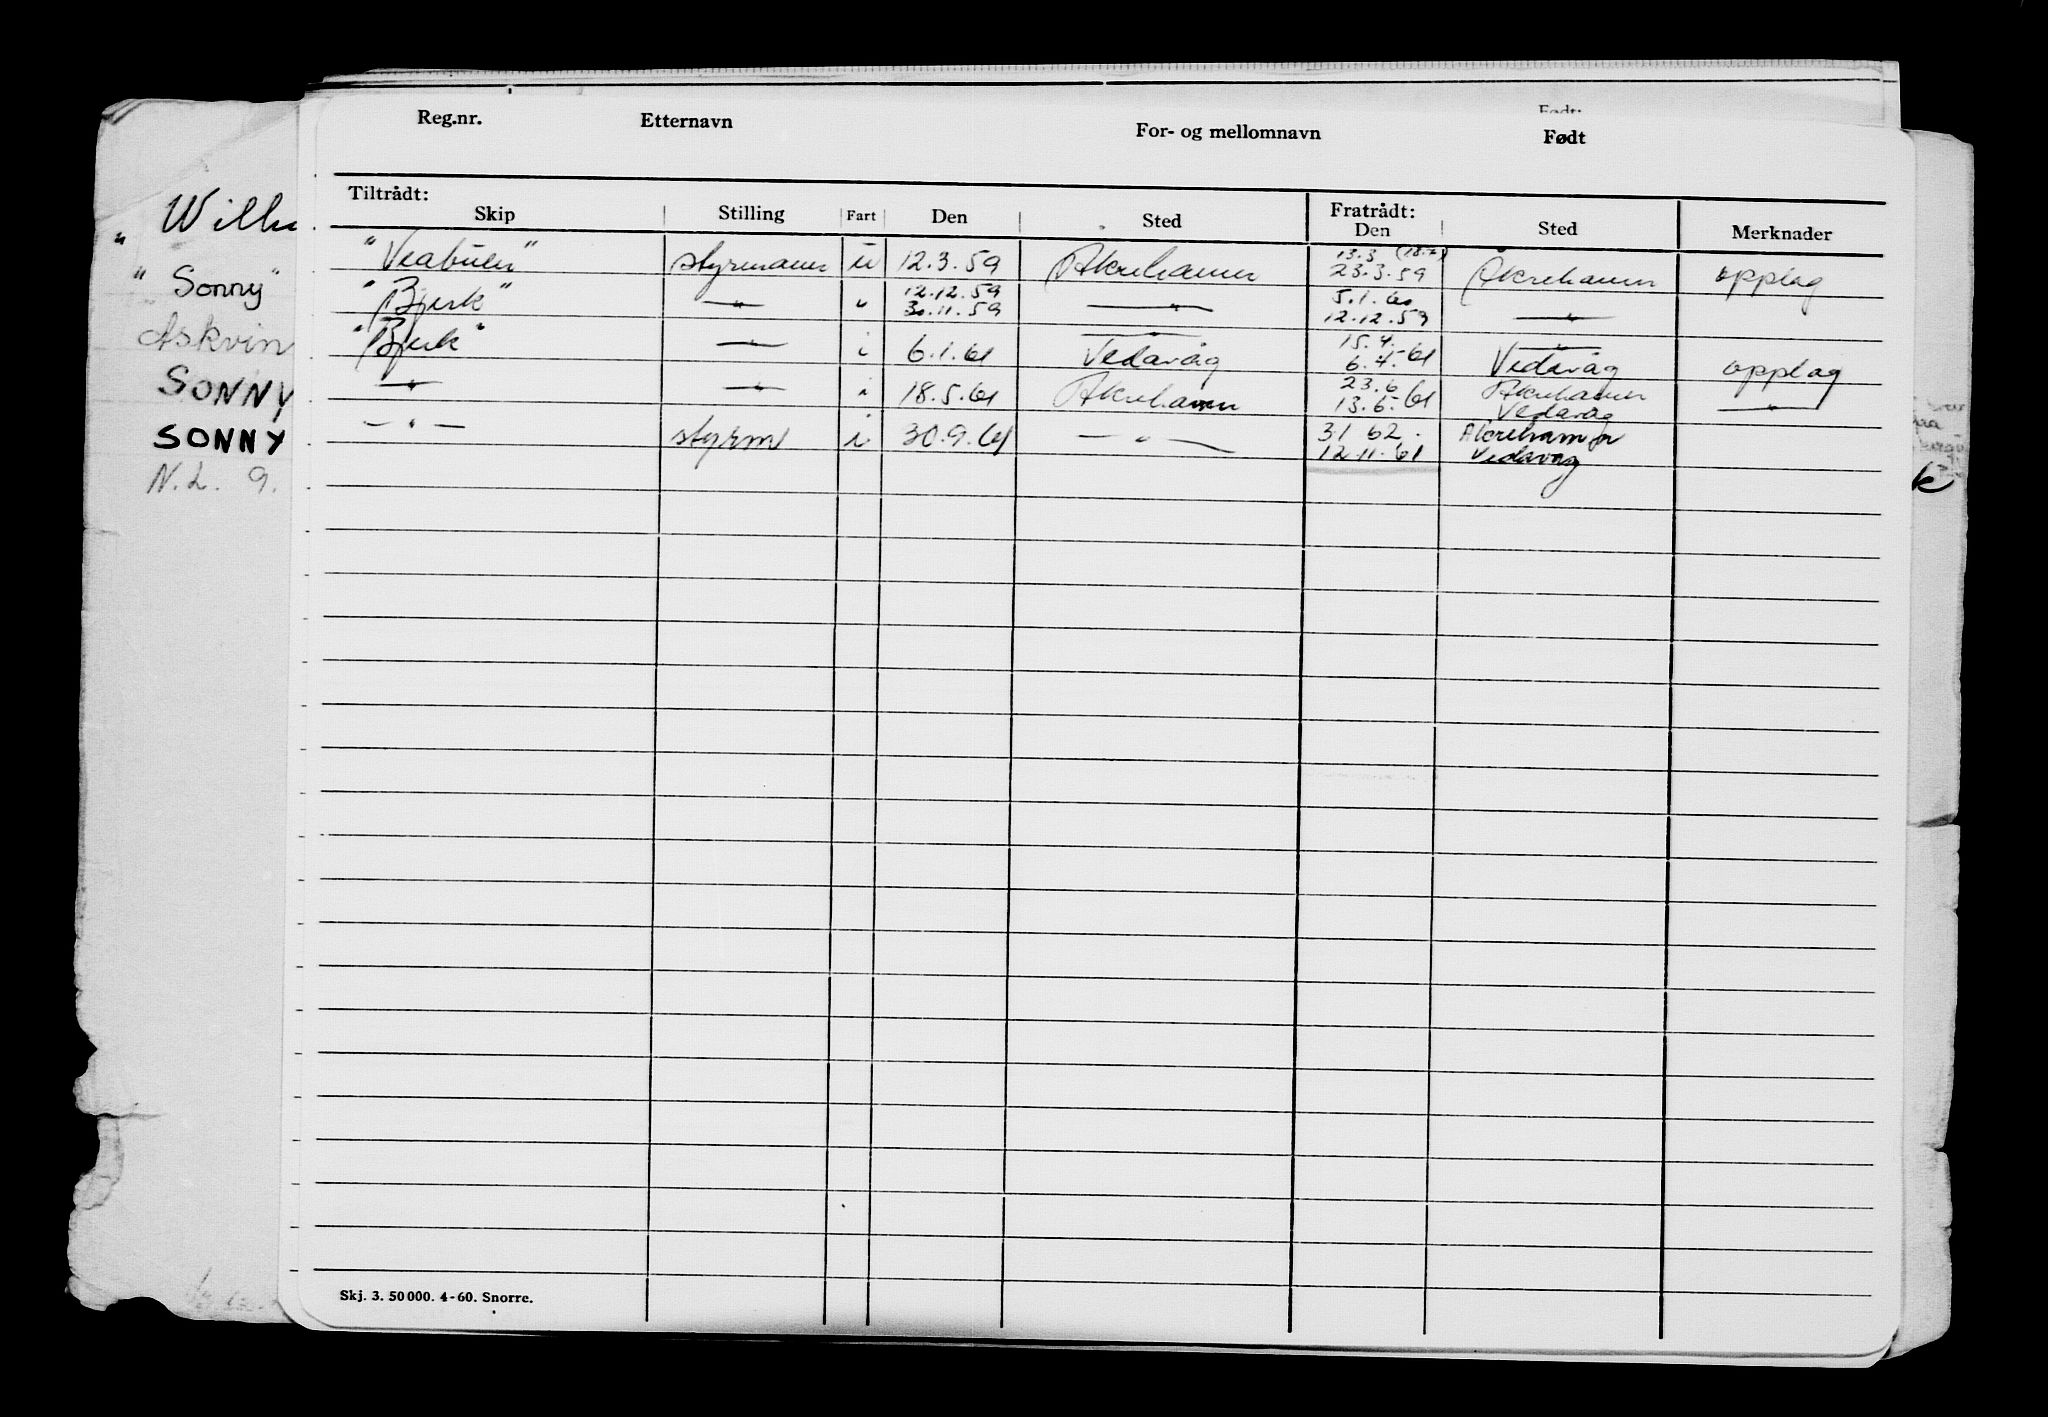 Reg.nr. Etternavn For- og mellomnavn Født
Tiltrådt: Fratrådt:
Skip Stilling Fart Den Sted Den Sted Merknader
"Veabuen" styrmann u 12.3.59 Åkrehamn 13.3 23.3.59 Åkrehamn opplag
"Bjerk" — " — " 12.12.59 30.11.59 — " — 5.1.60 12.12.59 — " —
"Bjerk" — " — i 6.1.61 — " — Vedavåg 15.4. 6.4.61 — " — Vedavåg opplag
— " — — " — i 18.5.61 Åkrehamn 23.6 13.6.61 Åkrehamn Vedavåg — " —
— " — styrm i 30.9.61 — " — 3.1 62. 12.11.61 Åkrehamn Vedavåg
Skj. 3. 50 000. 4-60. Snorre.
"Sonny"
Askvin
SONNY
SONNY
N.L. 9.